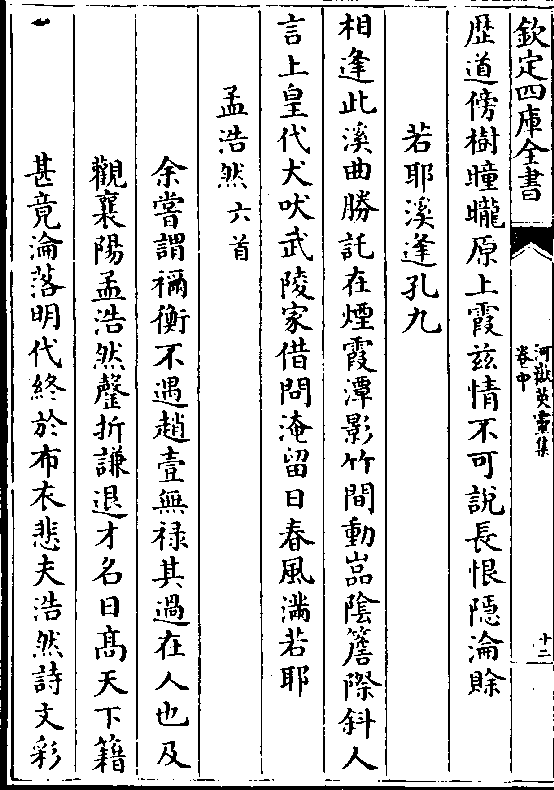 欽定四庫全書
河嶽英靈集
卷中
十二
歴道傍樹曈曨原上霞兹情不可說長恨隠淪賖
若耶溪逢孔九
相逢此溪曲勝託在煙霞潭影竹間動嵓陰簷際斜人
言上皇代犬吠武陵家借問淹留日春風滿若耶
孟浩然六首
余嘗謂禰衡不遇趙壹無禄其過在人也及
觀襄陽孟浩然罄折謙退才名日髙天下籍
甚竟淪落明代終於布衣悲夫浩然詩文彩